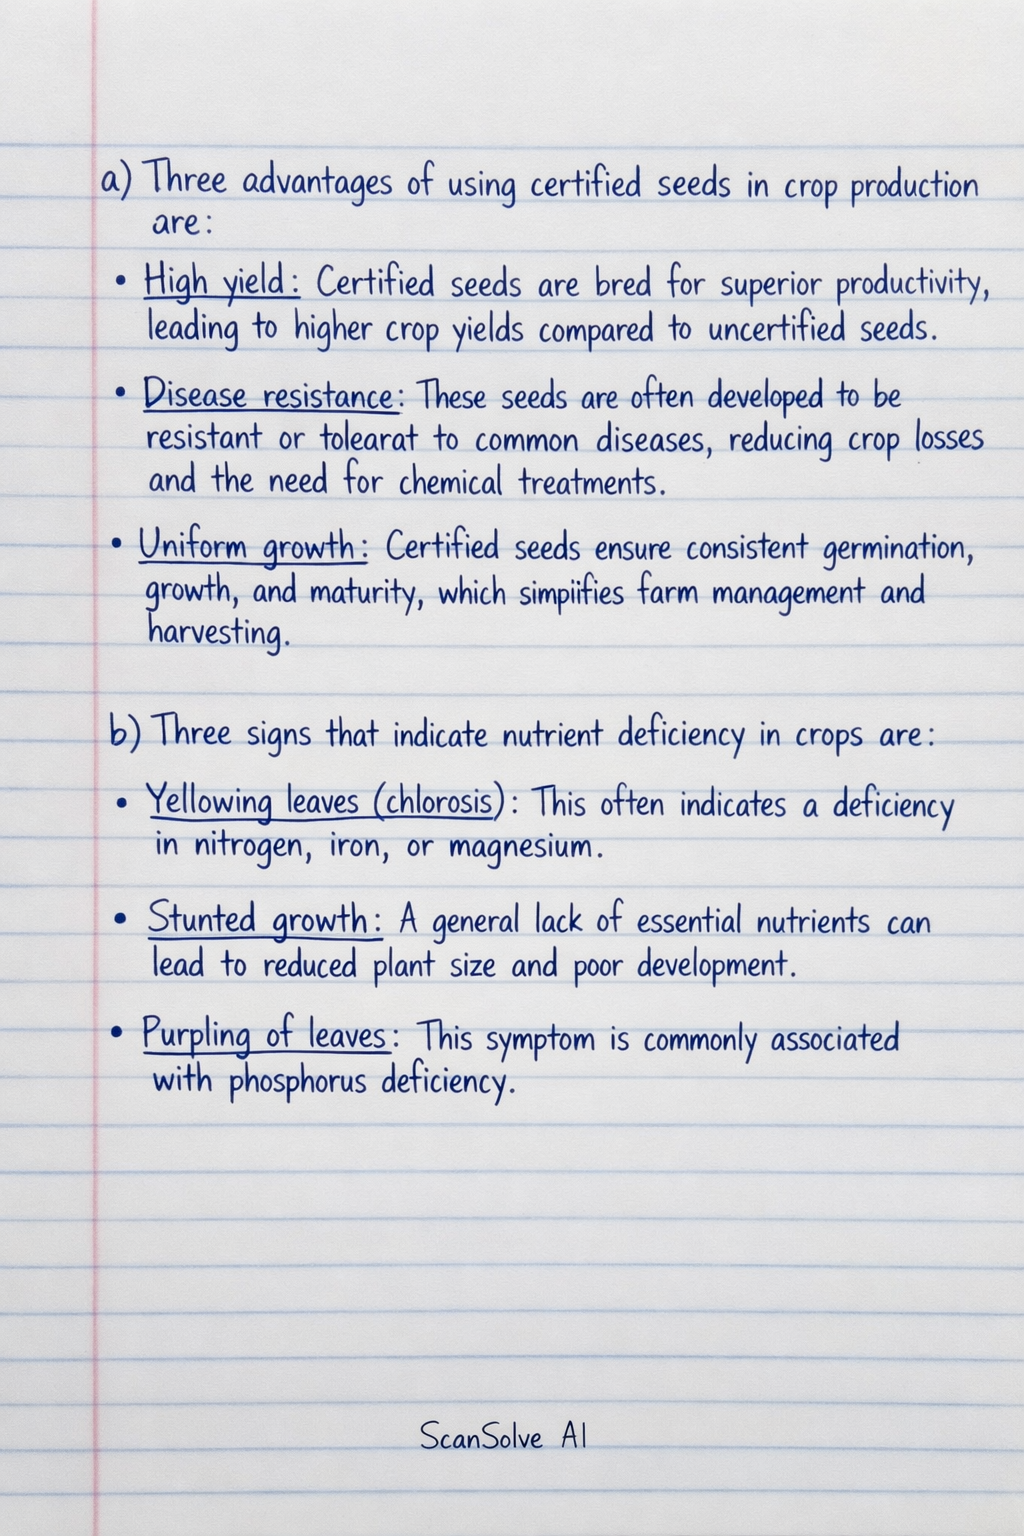 a) Three advantages of using certified seeds in crop production
are:
• High yield: Certified seeds are bred for superior productivity,
leading to higher crop yields compared to uncertified seeds.
• Disease resistance: These seeds are often developed to be
resistant or tolearat to common diseases, reducing crop losses
and the need for chemical treatments.
• Uniform growth: Certified seeds ensure consistent germination,
growth, and maturity, which simpiifies farm management and
harvesting.
b) Three signs that indicate nutrient deficiency in crops are:
• Yellowing leaves (chlorosis): This often indicates a deficiency
in nitrogen, iron, or magnesium.
• Stunted growth: A general lack of essential nutrients can
lead to reduced plant size and poor development.
• Purpling of leaves: This symptom is commonly associated
with phosphorus deficiency.
ScanSolve AI